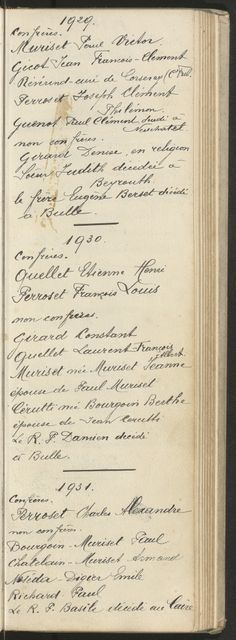 1929.
Confrères.
Muriset Paul Victor
Gicot Jean François-Clement
Révérend-curé de Corserey (C. Frib.
Perroset Joseph Clément
Philémon.
Quenot Paul Clément décédé à
Neuchâtel
non confrères.
Gérard Denise, en religion
Soeur Judith décédée à
Beyrouth
le frère Eugène Berset décédé
à Bulle.
1930.
Confrères.
Quellet Etienne Henri
Perroset François Louis
non confrères.
Gerard Constant
Quellet Laurent François
Albert.
Muriset née Muriset Jeanne
épouse de Paul Muriset
Cerutti née Bourgoin Berthe
épouse de Jean Cerutti
Le R. P. Damien décédé
à Bulle.
1931.
Confrères.
Perroset Charles Alexandre
non confrères.
Bourgoin-Muriset Paul
Chatelain-Muriset Armand
Digier Emile
Richard Paul
Le R. P. Basile décédé au Caire